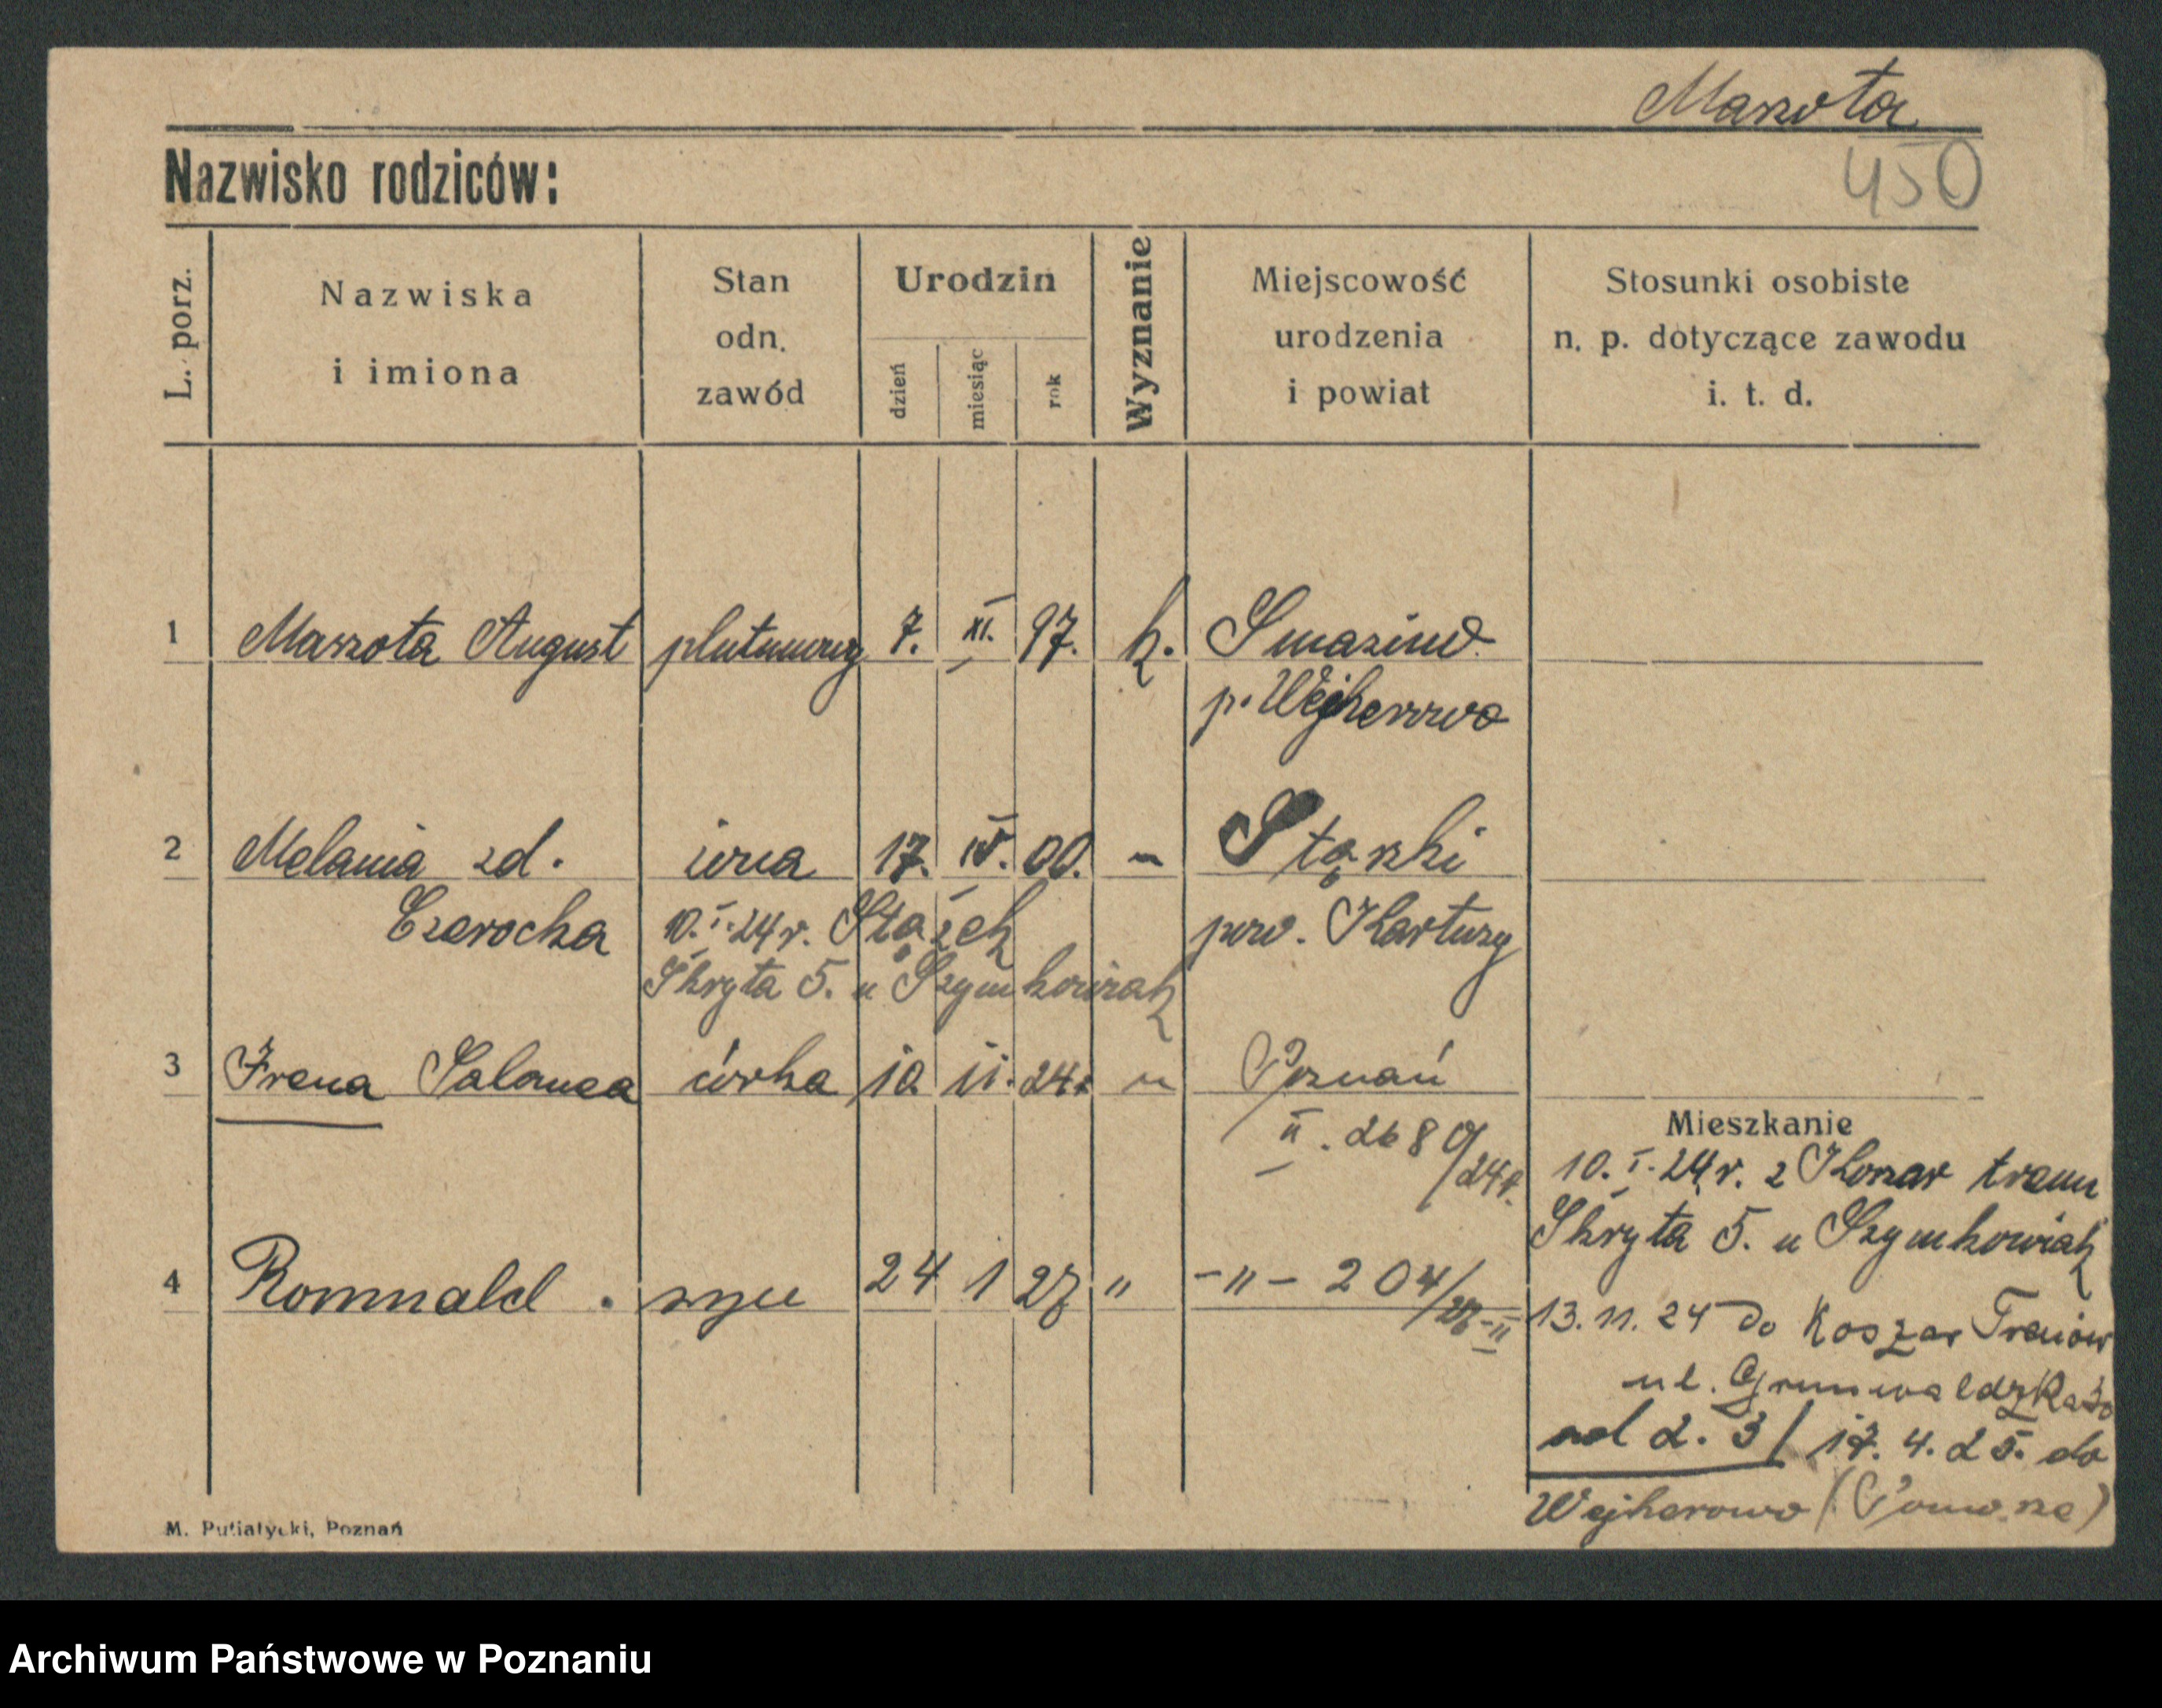 Maszota
450
Nazwisko rodziców:
L. porz.
Nazwiska
i imiona
Stan
odn.
zawód
Urodzin
dzień
miesiąc
rok
Wyznanie
Miejscowość
urodzenia
i powiat
Stosunki osobiste
n. p. dotyczące zawodu
i. t. d.
1 Maszota August plutonowy 7. XI. 97. k. Smazino
p. Wejherowo
2 Melania zd. żona 17. IV. 00. " Stążki
Czerocka 10.I.24r. pow. Kartuzy
Skryta 5. u Szymkowiak
3 Irena Salomea córka 10. 11. 24r " Poznań
II. 2680/24r.
Mieszkanie
10. I. 24r. z Koszar trenu
Skryta 5. u Szymkowiak
4 Romuald syn 24 1 27 " -"- 204/27-II
13. 11. 24 do Koszar Trenów
ul. Grunwaldzka
od 2. 3/ 17. 4. 25. do
Wejherowo (Pomorze)
M. Putiatycki, Poznań
Archiwum Państwowe w Poznaniu